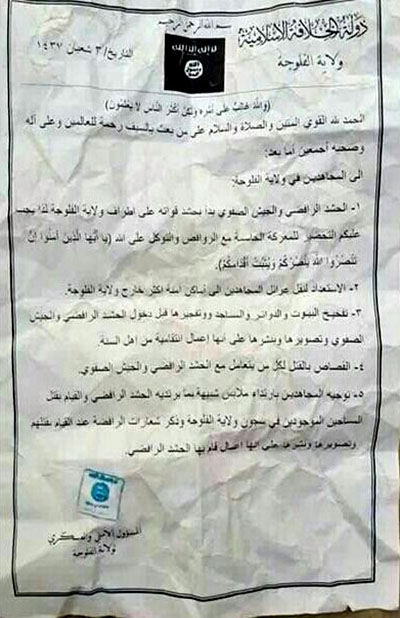 بسم الله الرحمن الرحيم
دولة الخلافة الاسلامية
ولاية الفلوجة
التاريخ/ ٣ شعبان ١٤٣٧
(والله غالب على أمره ولكن أكثر الناس لا يعلمون)
الحمد لله القوي المتين والصلاة والسلام على من بعث بالسيف رحمة للعالمين وعلى آله
وصحبه أجمعين أما بعد:
الى المجاهدين في ولاية الفلوجة:
١- الحشد الرافضي والجيش الصفوي بدأ بحشد قواته على أطراف ولاية الفلوجة لذا يجب
عليكم التحضير للمعركة الحاسمة مع الروافض والتوكل على الله (يا أيها الذين آمنوا إن
تنصروا الله ينصركم ويثبت أقدامكم).
٢- الإستعداد لنقل عوائل المجاهدين الى أماكن امنة اكثر خارج ولاية الفلوجة.
٣- تفخيخ البيوت والدوائر والمساجد وتفجيرها قبل دخول الحشد الرافضي والجيش
الصفوي وتصويرها ونشرها على أنها إعمال إنتقامية من اهل السنة.
٤- القصاص بالقتل لكل من يتعامل مع الحشد الرافضي والجيش الصفوي.
٥- توجيه المجاهدين بإرتداء ملابس شبيهة بما يرتديه الحشد الرافضي والقيام بقتل
المساجين الموجودين في سجون ولاية الفلوجة وذكر شعارات الرافضة عند القيام بقتلهم
وتصويرها ونشرها على انها اعمال قام بها الحشد الرافضي.
المسؤول الامني والعسكري
لولاية الفلوجة